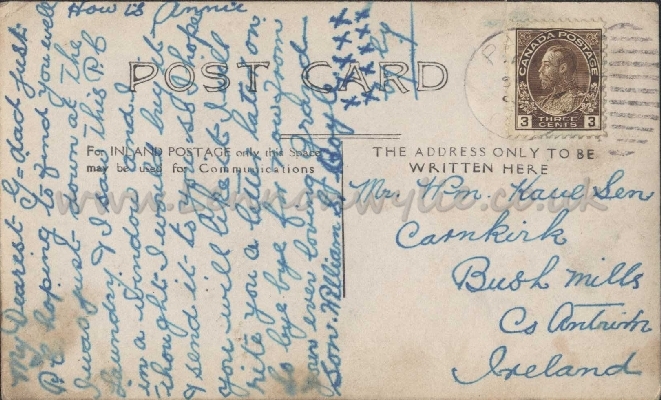 How is Annie
My Dearest G=dad Just
P.C hoping to find you well
I was Just down at The
Laundry & I saw This P.C
in a Window and I
thought I would buy it
& send it to you so I hope
you will like it I will
rite you a letter later on
So bye bye for now from
Your ever loving Grand
Son William J Boyle
xxxxx
xxxxx
POST CARD
For INLAND POSTAGE only this Space
may be used for Communications
THE ADDRESS ONLY TO BE
WRITTEN HERE
CANADA POSTAGE
3 THREE CENTS 3
Mr Wm. Kane Sen
Carnkirk
Bush Mills
Co Antrim
Ireland